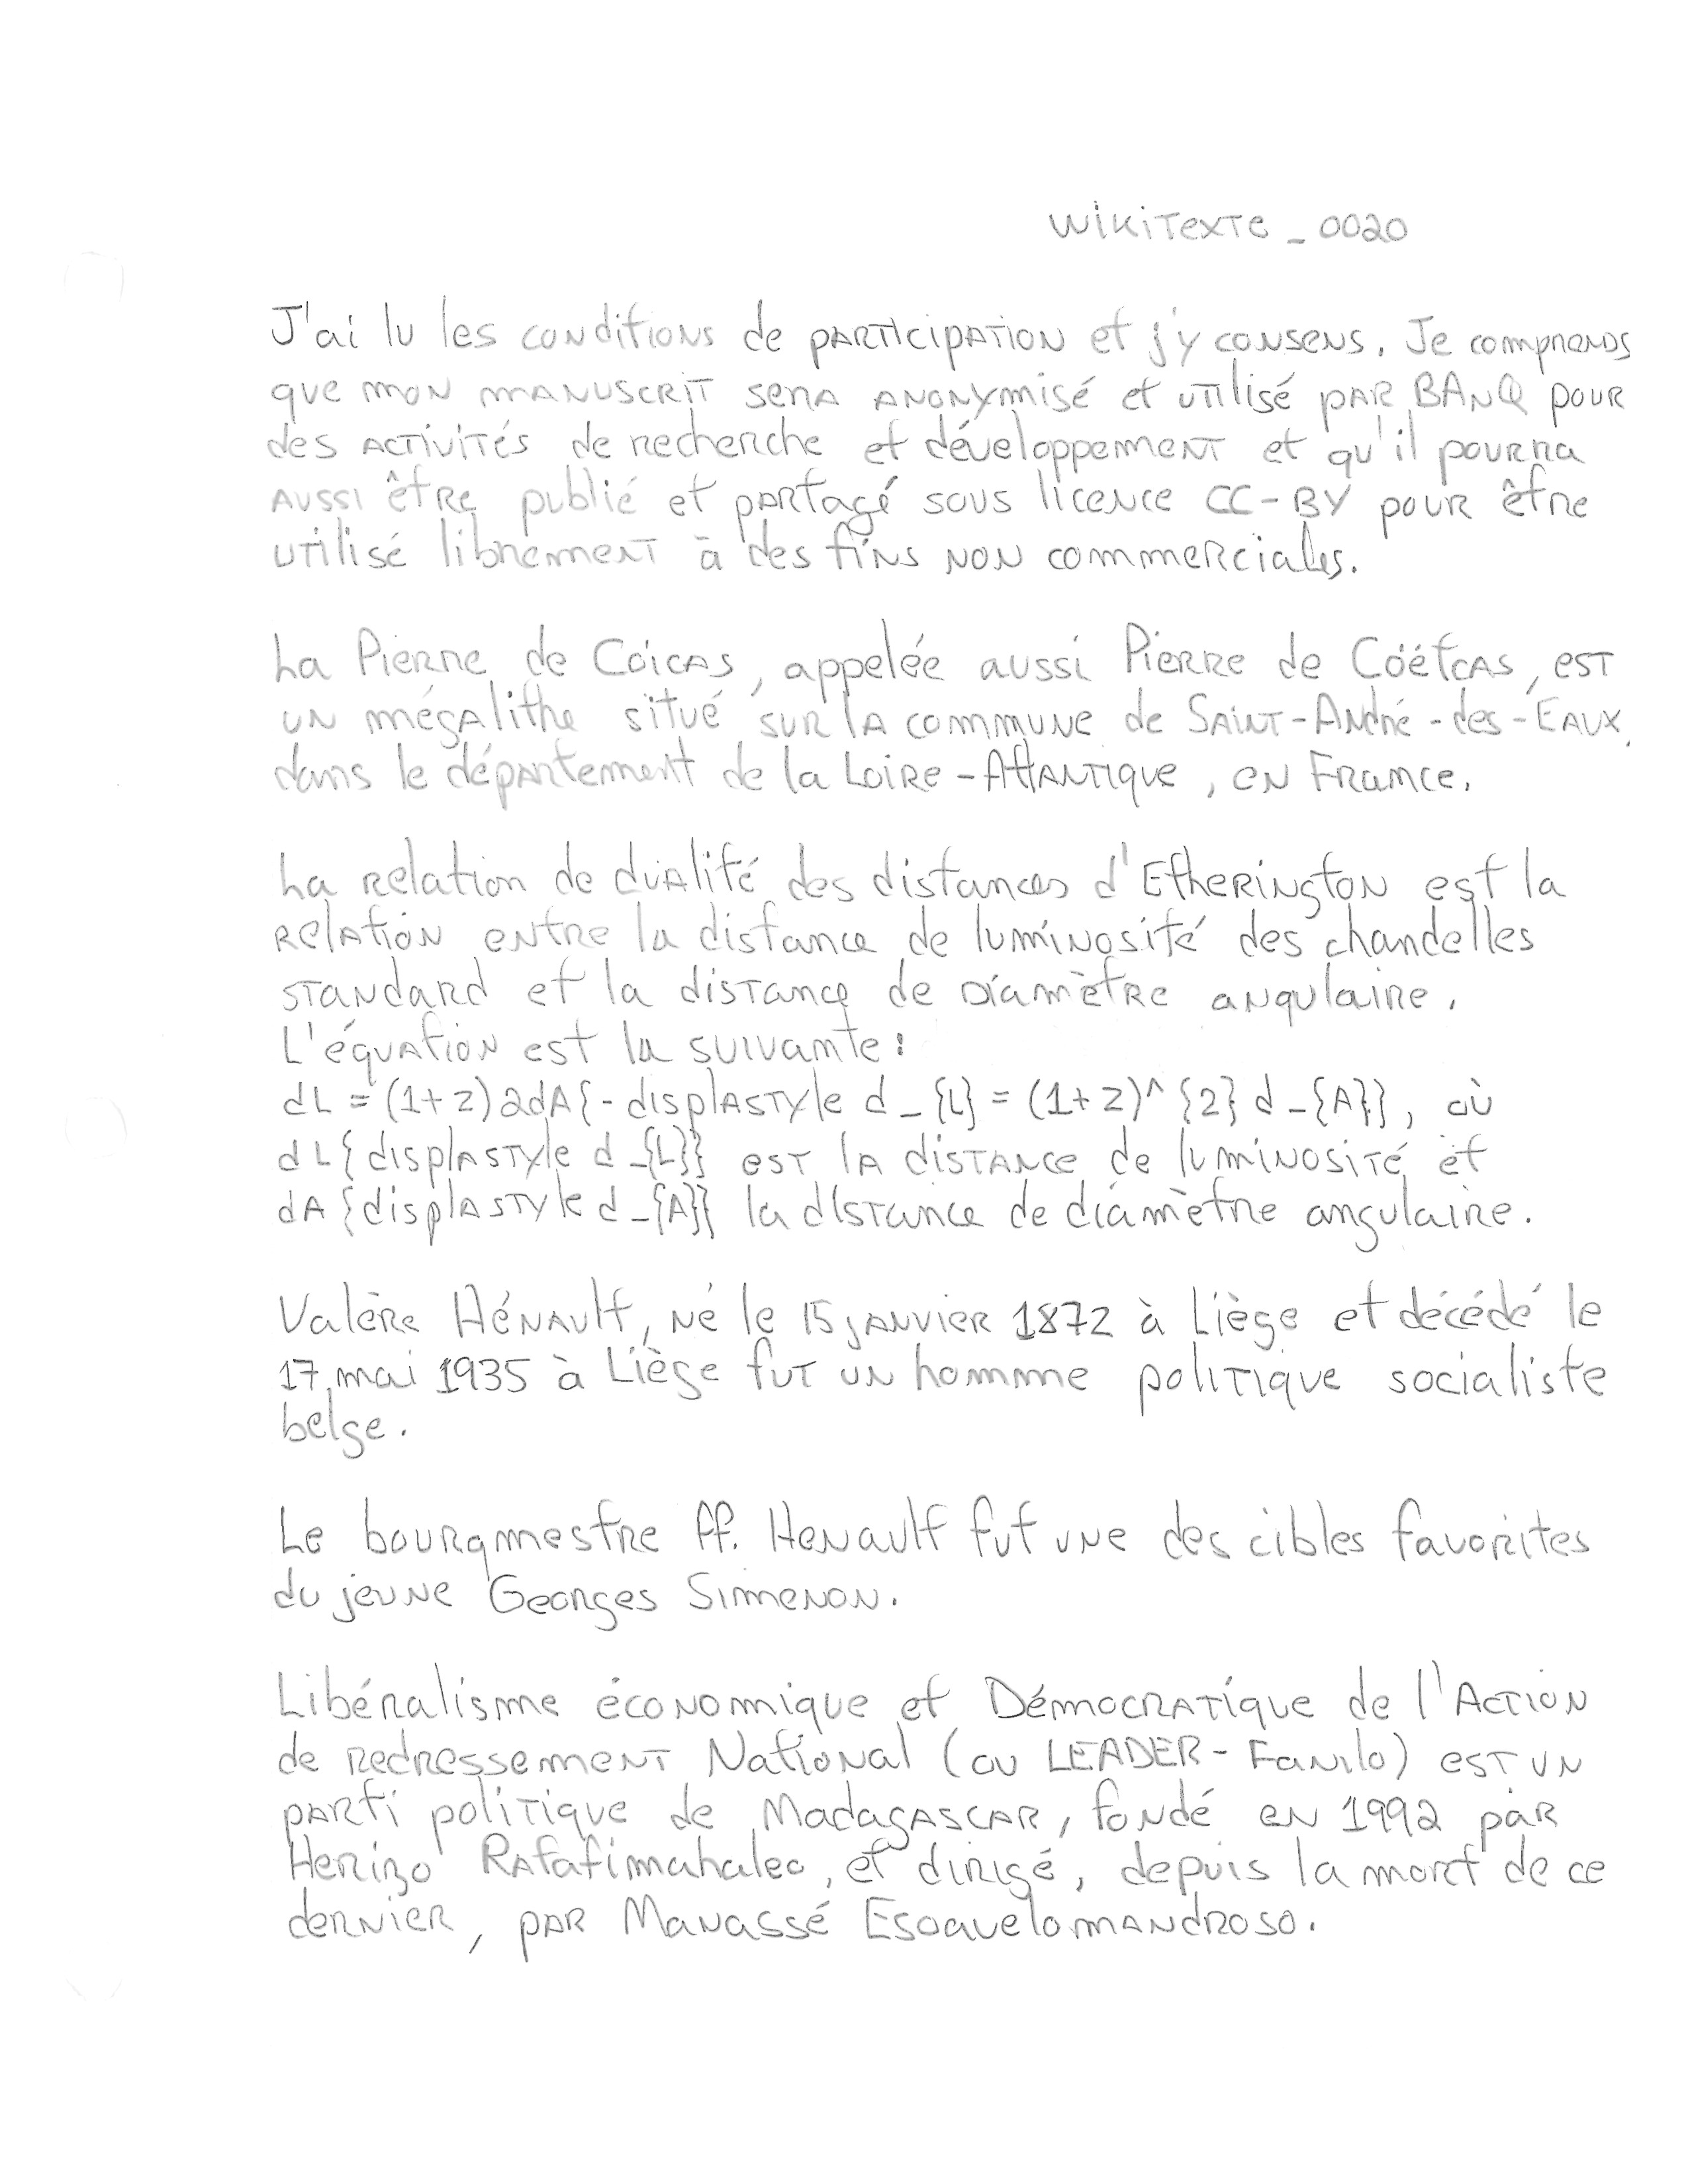 Wikitexte_0020
J'ai lu les conditions de participation et j'y consens. Je comprends
que mon manuscrit sera anonymisé et utilisé par BAnQ pour
des activités de recherche et développement et qu'il pourra
aussi être publié et partagé sous licence CC-BY pour être
utilisé librement à des fins non commerciales.
La Pierre de Coicas, appelée aussi Pierre de Coëtcas, est
un mégalithe situé sur la commune de Saint-André-des-Eaux,
dans le département de la Loire-Atlantique, en France.
La relation de dualité des distances d'Etherington est la
relation entre la distance de luminosité des chandelles
standard et la distance de diamètre angulaire.
L'équation est la suivante:
dL = (1+z)2dA{-displastyle d_{L} = (1+z)^{2} d_{A}}, où
dL{displastyle d_{L}} est la distance de luminosité et
dA{displastyle d_{A}} la distance de diamètre angulaire.
Valère Hénault, né le 15 janvier 1872 à Liège et décédé le
17 mai 1935 à Liège fut un homme politique socialiste
belge.
Le bourgmestre ff. Henault fut une des cibles favorites
du jeune Georges Simenon.
Libéralisme économique et Démocratique de l'Action
de redressement National (ou LEADER-Fanilo) est un
parti politique de Madagascar, fondé en 1992 par
Herizo Rafafimahaleo, et dirigé, depuis la mort de ce
dernier, par Manassé Esoavelomandroso.